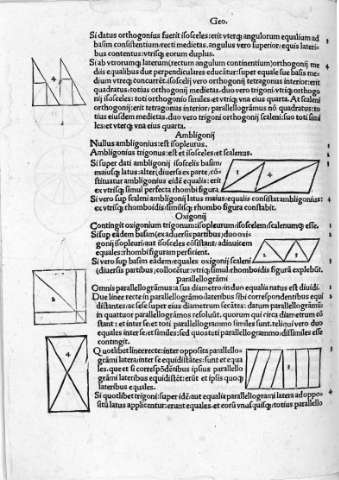 Geo.
Si datus orthogonius fuerit isosceles: erit vterq; angulorum equalium ad
basim consistentium: recti medietas. angulus vero superior: equis lateri-
bus contentus: vtrisq; eorum duplus.
Si ab vtronumq; laterum (rectum angulum continentium) orthogonij me
dijs equalibus due perpendiculares educātur: super equale sue basis me-
dium vtreq; concurrēt. isoscelij vero orthogonij tetragonus interior: erit
quadratus: totius orthogonij medietas. duo vero trigoni: vtriq; orthogo
nij isosceles: toti orthogonio similes. et vterq; vna eius quarta. At scaleni
orthogonij: erit tetragonus interior: parallelogrāmus nō quadratus: to
tius eiusdem medietas. duo vero trigoni orthogonij scaleni: suo toti simi
les: et vterq; vna eius quarta.
Ambligonij
Nullus ambligonius: est isopleurus.
Ambligonius trigonus: est et isosceles: et scalenus.
Si super dati ambligonij isoscelis basim:
maiusq; latus: alter, diuersa ex parte, cō-
stituatur ambligonius eidē equalis: erit
ex vtrisq; simul perfecta rhombi figura
Si vero sup scaleni ambligonij latus maius: equalis consistat ambligonius:
ex vtrisq; rhomboidis: similisq; rhombo figura constabit.
Oxigonij
Contingit oxigonium trigonum: isopleurum: isoscelem: scalenumq; esse.
Si sup eādem basim (ex aduersis partibus) duo oxi-
gonij isopleuri: aut isosceles cōsistant: adinuicem
equales: rhombi figuram perficient.
Si vero sup basim eādem: equales oxigonij scaleni
(diuersis partibus) collocētur: vtriq; simul: rhomboidis figurā explebūt.
parallelogrāmi
Omnis parallelogrāmus: a sua diametro: in duo equalia natus est diuidi.
Due linee recte in parallelogrāmo: lateribus sibi correspondentibus equi
distantes: ac sese super eius diametrum secātes: datum parallelogrāmū
in quattuor parallelogrāmos resoluūt. quorum qui circa diametrum cō
stant: et inter se: et toti parallelogrammo similes sunt. reliqui vero duo
equales inter se: et similes: sed quos toti parallelogrammo dissimiles esse
contingit.
Quotlibet linee recte: inter opposita parallelo-
grāmi latera: inter se equidistātes: sunt et equa
les. que et si correspōdētibus ipsius parallelo
grāmi lateribus equidistēt: erūt et ipsis quoq;
lateribus equales.
Si quotlibet trigoni: super idē aut equalia parallelogrami latera ad oppo-
sitū latus applicentur: erunt equales. et eorū vnusquisq; totius parallelo